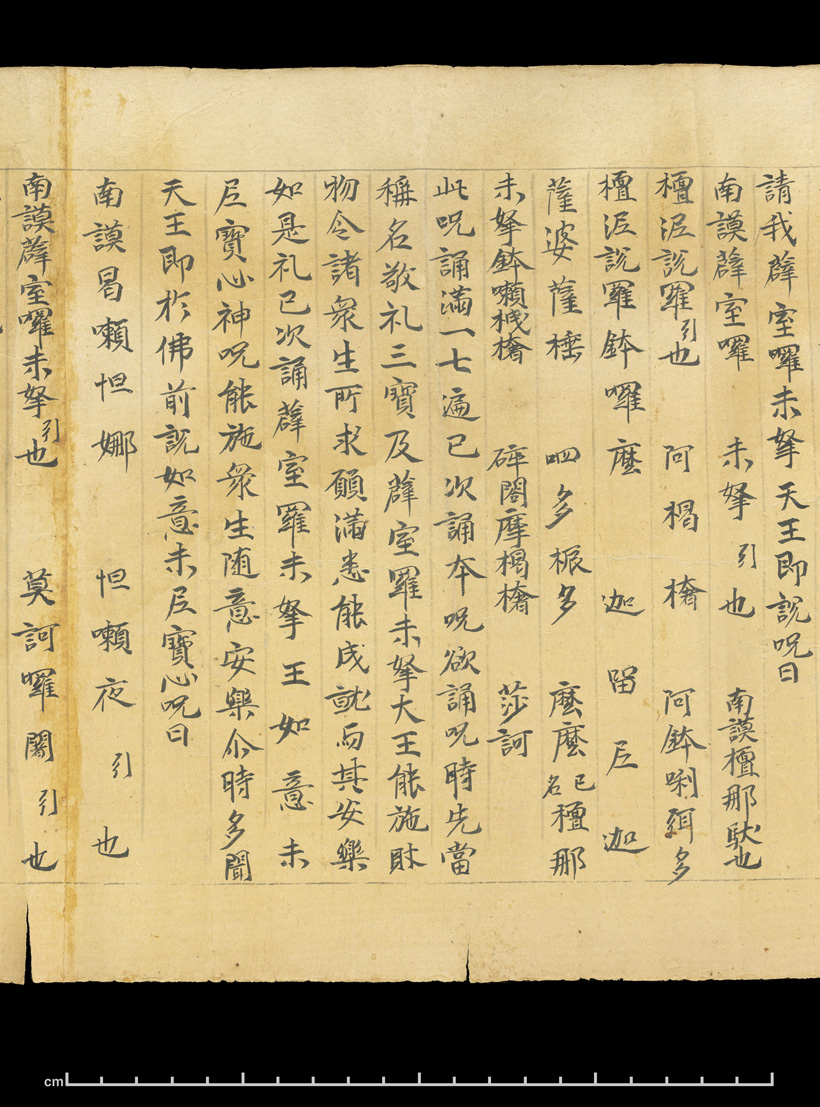 請我薜室囉末拏天王即說呪曰
南謨薜室囉 末拏引也 南謨檀那馱也
檀泥說羅引也 阿揭㮈 阿鉢唎弭多
檀泥說羅鉢囉麼 迦留尼迦
薩婆薩埵 呬多振多 麼麼己名檀那
末拏鉢囉 㮈 碎閣摩揭㮈 莎訶
此呪誦滿一七遍已次誦本呪欲誦呪時先當
稱名敬礼三寶及薜室羅末拏大王能施財
物令諸衆生所求願滿悉能成就与其安樂
如是礼已次誦薜室羅末拏王如意末
尼寶心神呪能施衆生随意安樂尒時多聞
天王即於佛前說如意末尼寶心呪曰
南謨曷囉怛娜 怛囉夜引也
南謨薜室囉末拏引也 莫訶囉闍引也
cm